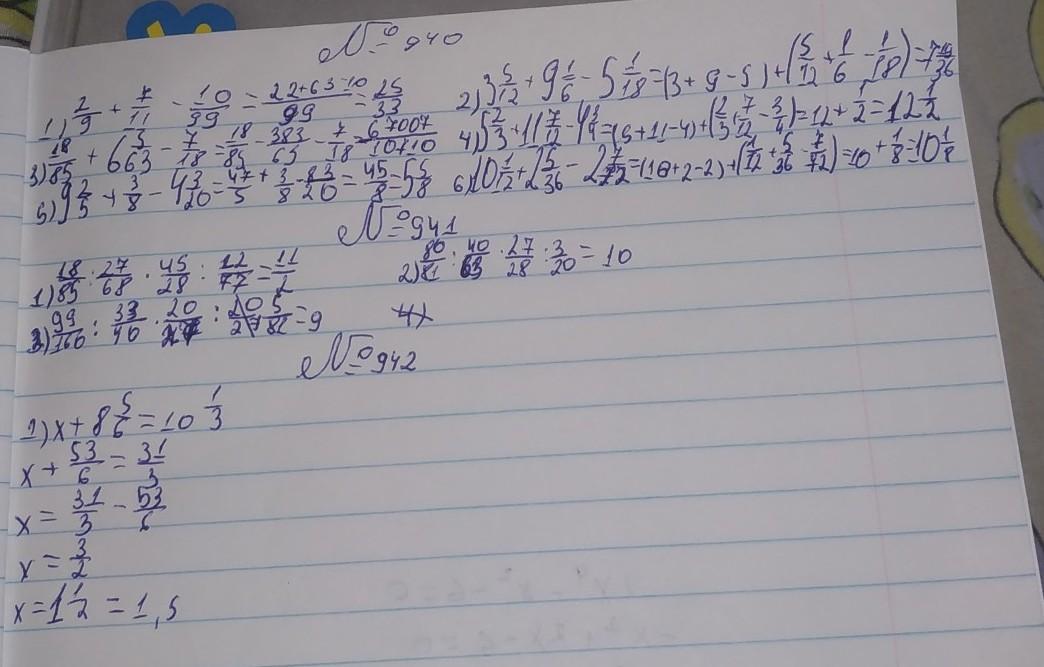 № 940
1) 2/9 + 7/11 - 10/99 = (22+63-10)/99 = 25/33
2) 3 5/12 + 9 1/6 - 5 1/18 = (3+9-5) + (5/12 + 1/6 - 1/18) = 7 19/36
3) 18/85 + 6 5/63 - 7/18 = 18/85 - 383/63 - 7/18 = 67007/10710
4) 5 2/3 + 11 7/12 - 4 3/4 = (5+11-4) + (2/3 + 7/12 - 3/4) = 12 + 1/2 = 12 1/2
5) 9 2/5 + 3/8 - 4 3/20 = 47/5 + 3/8 - 83/20 = 45/8 = 5 5/8
6) 10 1/12 + 2 5/36 - 2 7/72 = (10+2-2) + (1/12 + 5/36 - 7/72) = 10 + 1/8 = 10 1/8
№ 941
1) 18/85 : 27/68 · 45/28 : 12/77 = 11/2
2) 80/81 : 40/63 · 27/28 : 3/20 = 10
3) 99/160 : 33/40 · 20/27 : 20/27 5/81 = 9
4)
№ 942
1) x + 8 5/6 = 10 1/3
x + 53/6 = 31/3
x = 31/3 - 53/6
x = 3/2
x = 1 1/2 = 1,5